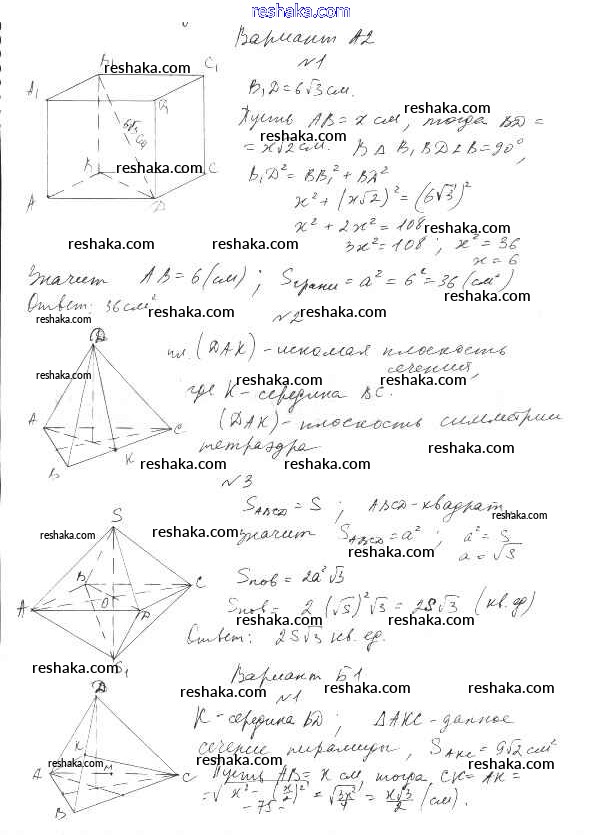 reshaka.com
Вариант А2
№1
B₁D = 6√3 см.
Пусть AB = x см, тогда BD =
= x√2 см. В Δ B₁BD ∠B = 90°,
B₁D² = BB₁² + BD²
x² + (x√2)² = (6√3)²
x² + 2x² = 108
3x² = 108; x² = 36
x = 6
Значит AB = 6 (см); Sграни = a² = 6² = 36 (см²)
Ответ: 36 см²
A₁ B₁ C₁ D₁ 6√3 см A B C D
№2
пл. (DAK) - искомая плоскость
сечения,
где K - середина BC.
(DAK) - плоскость симметрии
тетраэдра.
D A B C K
№3
S_ABCD = S; ABCD - квадрат,
значит S_ABCD = a²; a² = S
a = √S
Sпов = 2a²√3
Sпов = 2(√S)²√3 = 2S√3 (кв. ед)
Ответ: 2S√3 кв. ед.
S A B C D O S₁
Вариант Б1
№1
K - середина BD; ΔAKC - данное
сечение пирамиды, S_AKC = 9√2 см²
Пусть AB = x см, тогда CK = AK =
= √x² - (x/2)² = √3x²/4 = x√3/2 (см).
D K A M C B
- 75 -
reshaka.com